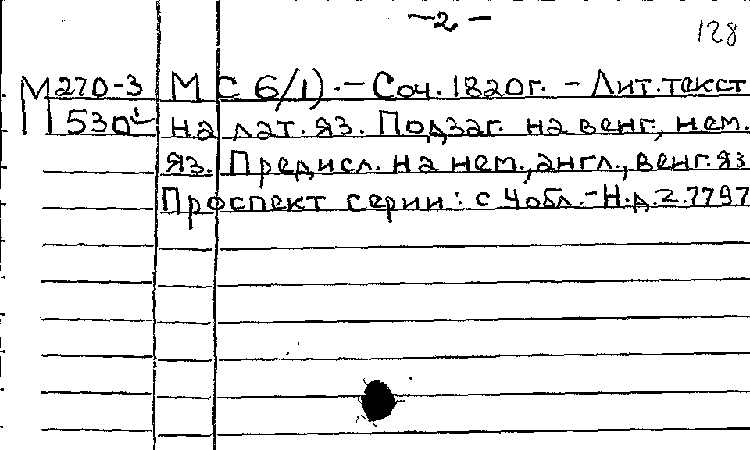 — 2 —
128
М270-3 МС 6/1). — Соч. 1820г. — Лит. текст
530 на лат. яз. Подзаг. на венг., нем.
яз. Предисл. на нем., англ., венг. яз
Проспект серии: с 4 обл. — Н.д. Z. 7797